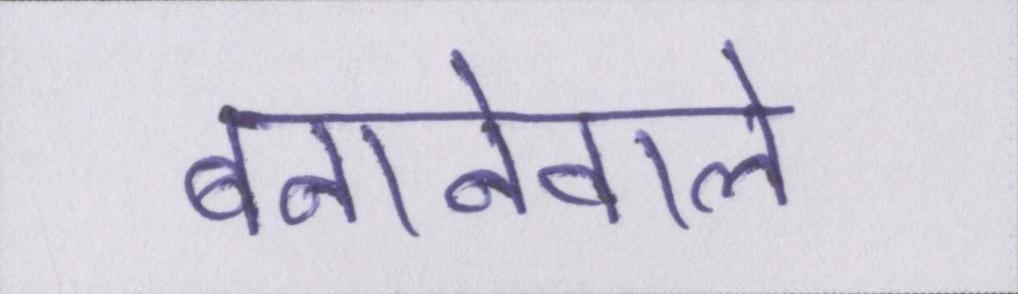 बनानेवाले